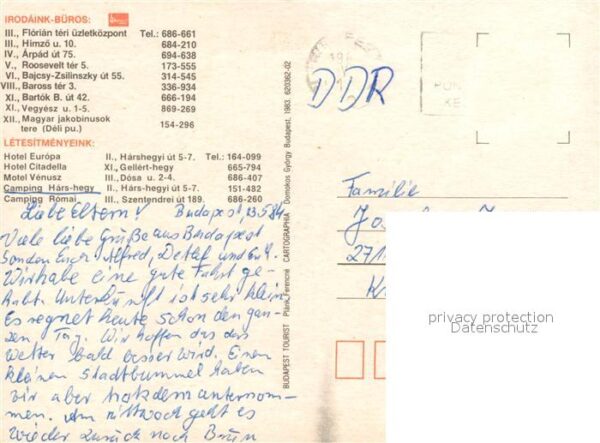 IRODÁINK-BÜROS:
III., Flórián téri üzletközpont Tel.: 686-661
III., Hímző u. 10. 684-210
IV., Árpád út 75. 694-638
V., Roosevelt tér 5. 173-555
VI., Bajcsy-Zsilinszky út 55. 314-545
VIII., Baross tér 3. 336-934
XI., Bartók B. út 42. 666-194
XI., Vegyész u. 1-5. 869-269
XII., Magyar jakobinusok
tere (Déli pu.) 154-296
LÉTESÍTMÉNYEINK:
Hotel Európa II., Hárshegyi út 5-7. Tel.: 164-099
Hotel Citadella XI., Gellért-hegy 665-794
Motel Vénusz III., Dósa u. 2-4. 686-407
Camping Hárs-hegy II., Hárs-hegyi út 5-7. 151-482
Camping Római III., Szentendrei út 189. 686-260
Liebe Eltern! Budapest, 13.5.84
Viele liebe Grüße aus Budapest
senden Euch Alfred, Detlef und
Wir habe eine gute Fahrt ge-
habt. Unterkunft ist sehr klein
Es regnet heute schon den gan-
zen Tag. Wir hoffen das das
Wetter bald besser wird. Einen
kleinen Stadtbummel haben
wir aber trotzdem unternom-
men. Am Mittwoch geht es
wieder zurück nach Brün
BUDAPEST TOURIST Plánk Ferencné CARTOGRAPHIA Domokos György Budapest, 1983. 620362-02
DDR
Familie
privacy protection
Datenschutz